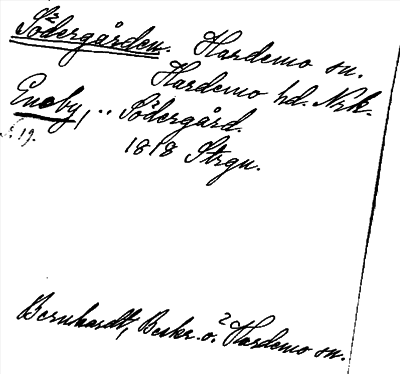 Södergården. Hardemo sn.
Hardemo hd. Nrk.
Eneby, .. Södergård.
19.
1818 Strgn.
Bernhardt, Beskr. ö. Hardemo sn.